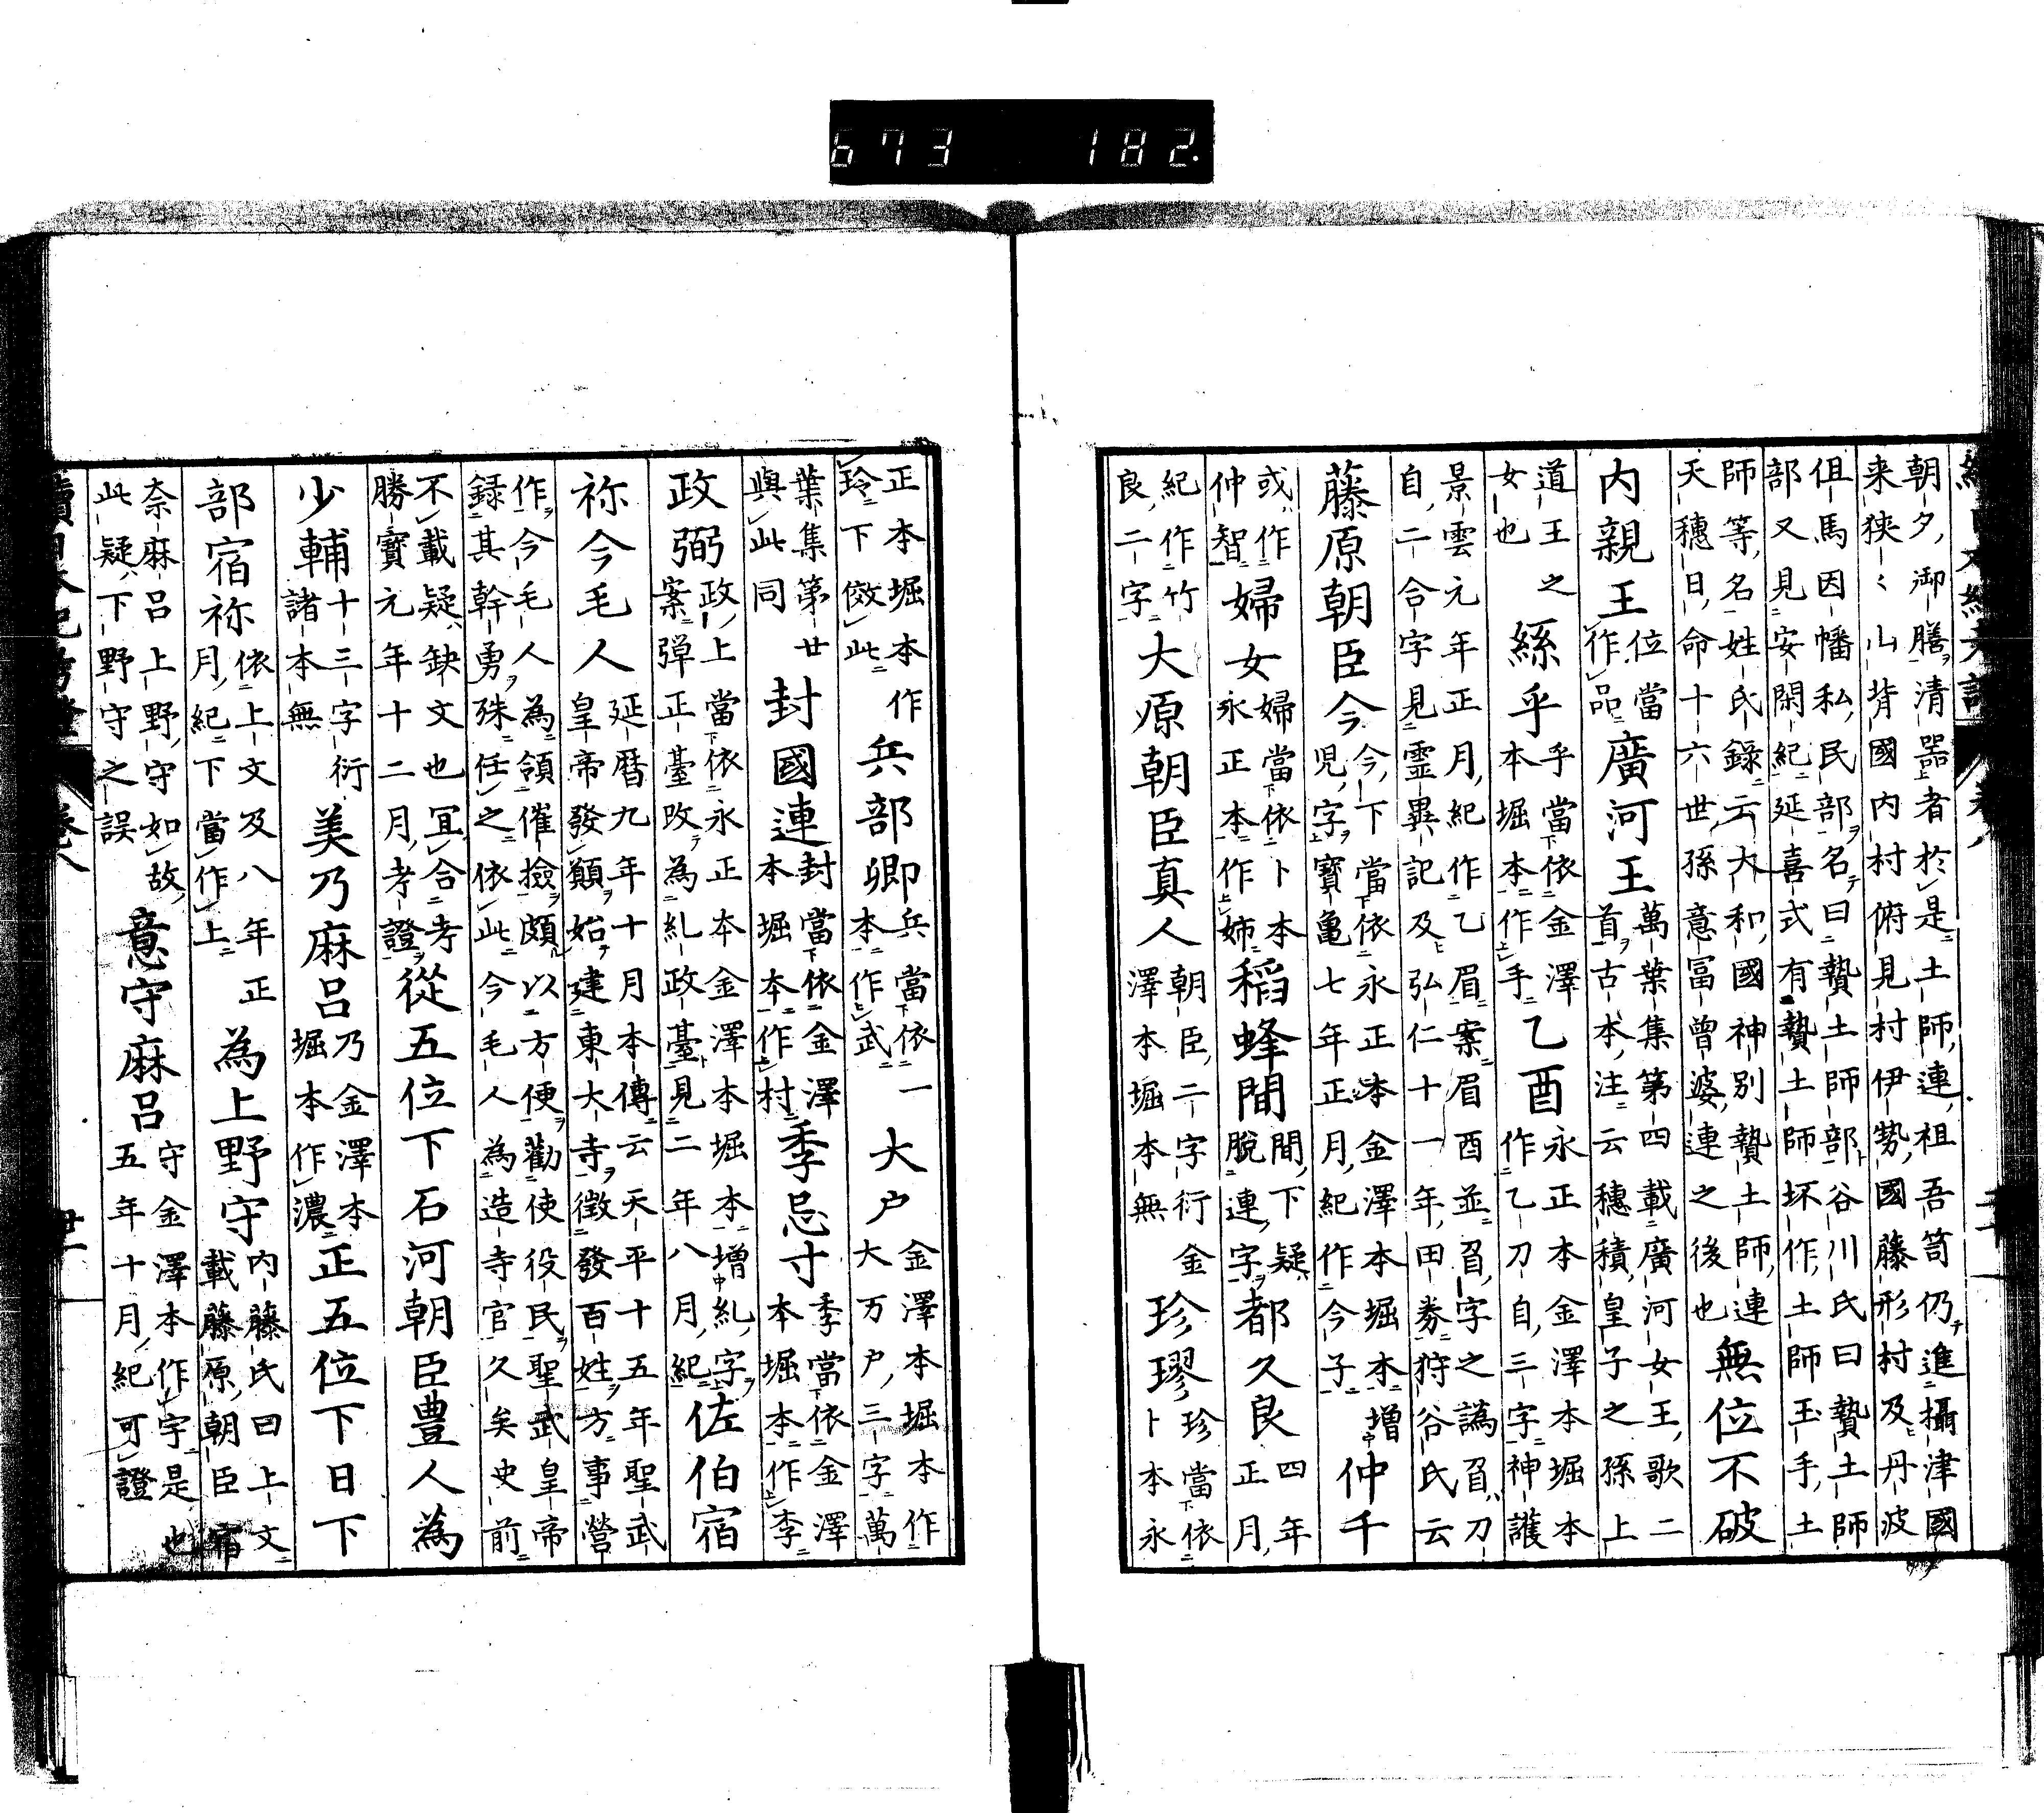 朝夕御膳清器者於是土師連祖吾笥仍進攝津國
来狹々山背國内村俯見村伊勢國藤形村及丹波
但馬因幡私民部名曰贄土師部谷川氏曰贄土師
部又見安閑紀延喜式有贄土師坏作土師玉手土
師等名姓氏錄云大和國神別贄土師連
天穗日命十六世孫意冨曽婆連之後也
無位不破
内親王 位當作品 廣河王 萬葉集第四載廣河女王歌二首古本注云穗積皇子之孫上
道王之女也 絲乎 乎當依金澤本堀本作手 乙酉 永正本金澤本堀本作乙刀自三字神護
景雲元年正月紀作乙眉案眉酉並字之譌刀
自二合字見靈異記及弘仁十一年田券狩谷氏云
藤原朝臣今 今下當依永正本金澤本堀本增兒字寶亀七年正月紀作今子 仲千
或作仲智 婦女 婦當依卜本永正本作姉 稻蜂間 間下疑脱連字 都久良 四年正月
紀作竹良二字 大原朝臣真人 朝臣二字衍金澤本堀本無 珍璆 珍當依卜本永
正本堀本作玲下傚此 兵部卿 兵當依一本作武 大户 金澤本堀本作大万户三字萬
葉集第廿與此同 封國連 封當依金澤本堀本作村 季忌寸 季當依金澤本堀本作李
政弼 政上當依永正本金澤本堀本增糺字案彈正臺改為糺政臺見二年八月紀 佐伯宿
祢今毛人 延暦九年十月本傳云天平十五年聖武皇帝發願始建東大寺徵發百姓方事營
作今毛人為領催撿頗以方便勸使役民聖武皇帝
錄其幹勇殊任之依此今毛人為造寺官久矣史前
不載疑缺文也冝合考勝寳元年十二月考證 從五位下石河朝臣豊人為
少輔 十三字衍諸本無 美乃麻呂 乃金澤本堀本作濃 正五位下日下
部宿祢 依上文及八年正月紀下當作上 為上野守 内藤氏曰上文載藤原朝臣宿
奈麻呂上野守如故此疑下野守之誤 意守麻呂 守金澤本作宇是也五年十月紀可證